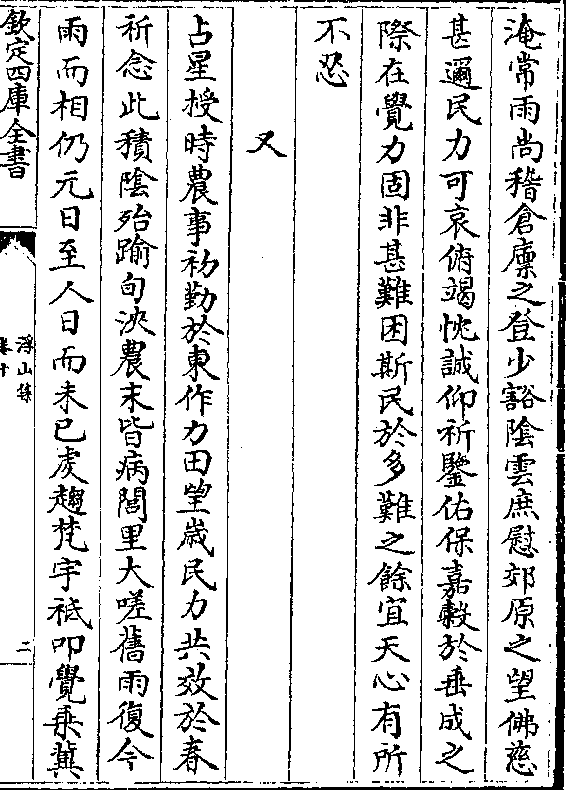 淹常雨尚稽倉廩之登少豁陰雲庶慰郊原之望佛慈
甚邇民力可哀俯竭忱誠仰祈鑒佑保嘉穀於垂成之
際在覺力固非甚難困斯民於多難之餘宜天心有所
不忍
又
占星授時農事初勤於東作力田望歲民力共效於春
祈念此積陰殆踰旬浹農末皆病閭里大嗟舊雨復今
雨而相仍元日至人日而未已虔趨梵宇祗叩覺乗冀
欽定四庫全書
浮山集
卷十
二